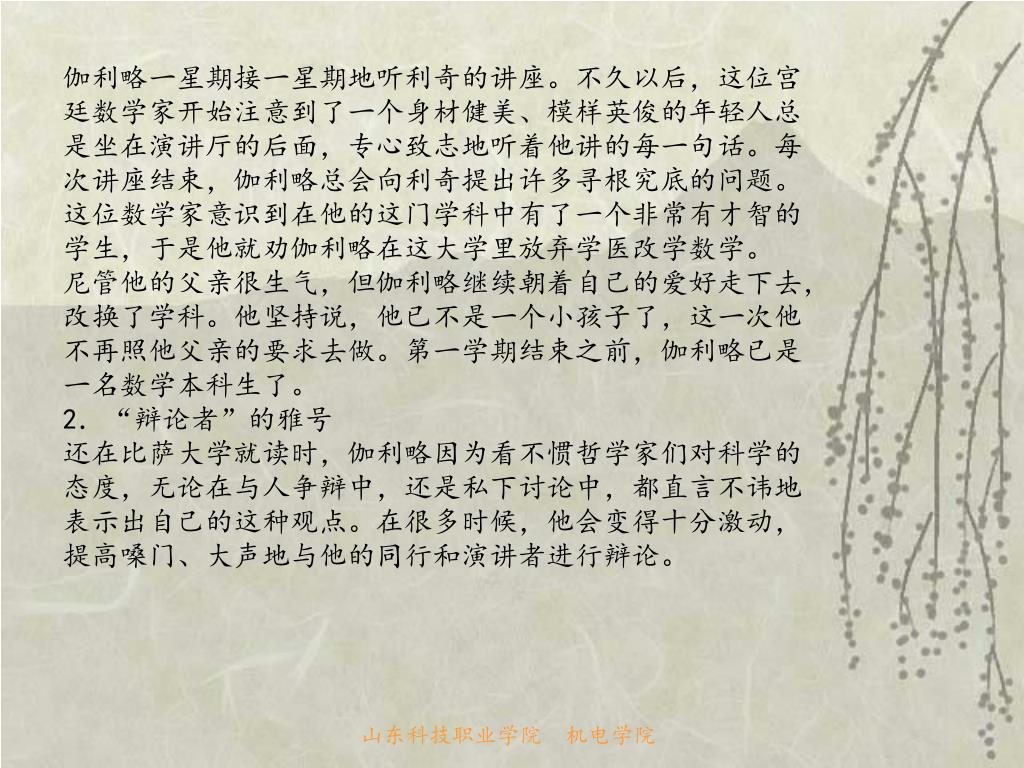 伽利略一星期接一星期地听利奇的讲座。不久以后，这位宫
廷数学家开始注意到了一个身材健美、模样英俊的年轻人总
是坐在演讲厅的后面，专心致志地听着他讲的每一句话。每
次讲座结束，伽利略总会向利奇提出许多寻根究底的问题。
这位数学家意识到在他的这门学科中有了一个非常有才智的
学生，于是他就劝伽利略在这大学里放弃学医改学数学。
尼管他的父亲很生气，但伽利略继续朝着自己的爱好走下去，
改换了学科。他坚持说，他已不是一个小孩子了，这一次他
不再照他父亲的要求去做。第一学期结束之前，伽利略已是
一名数学本科生了。
2．“辩论者”的雅号
还在比萨大学就读时，伽利略因为看不惯哲学家们对科学的
态度，无论在与人争辩中，还是私下讨论中，都直言不讳地
表示出自己的这种观点。在很多时候，他会变得十分激动，
提高嗓门、大声地与他的同行和演讲者进行辩论。
山东科技职业学院　机电学院